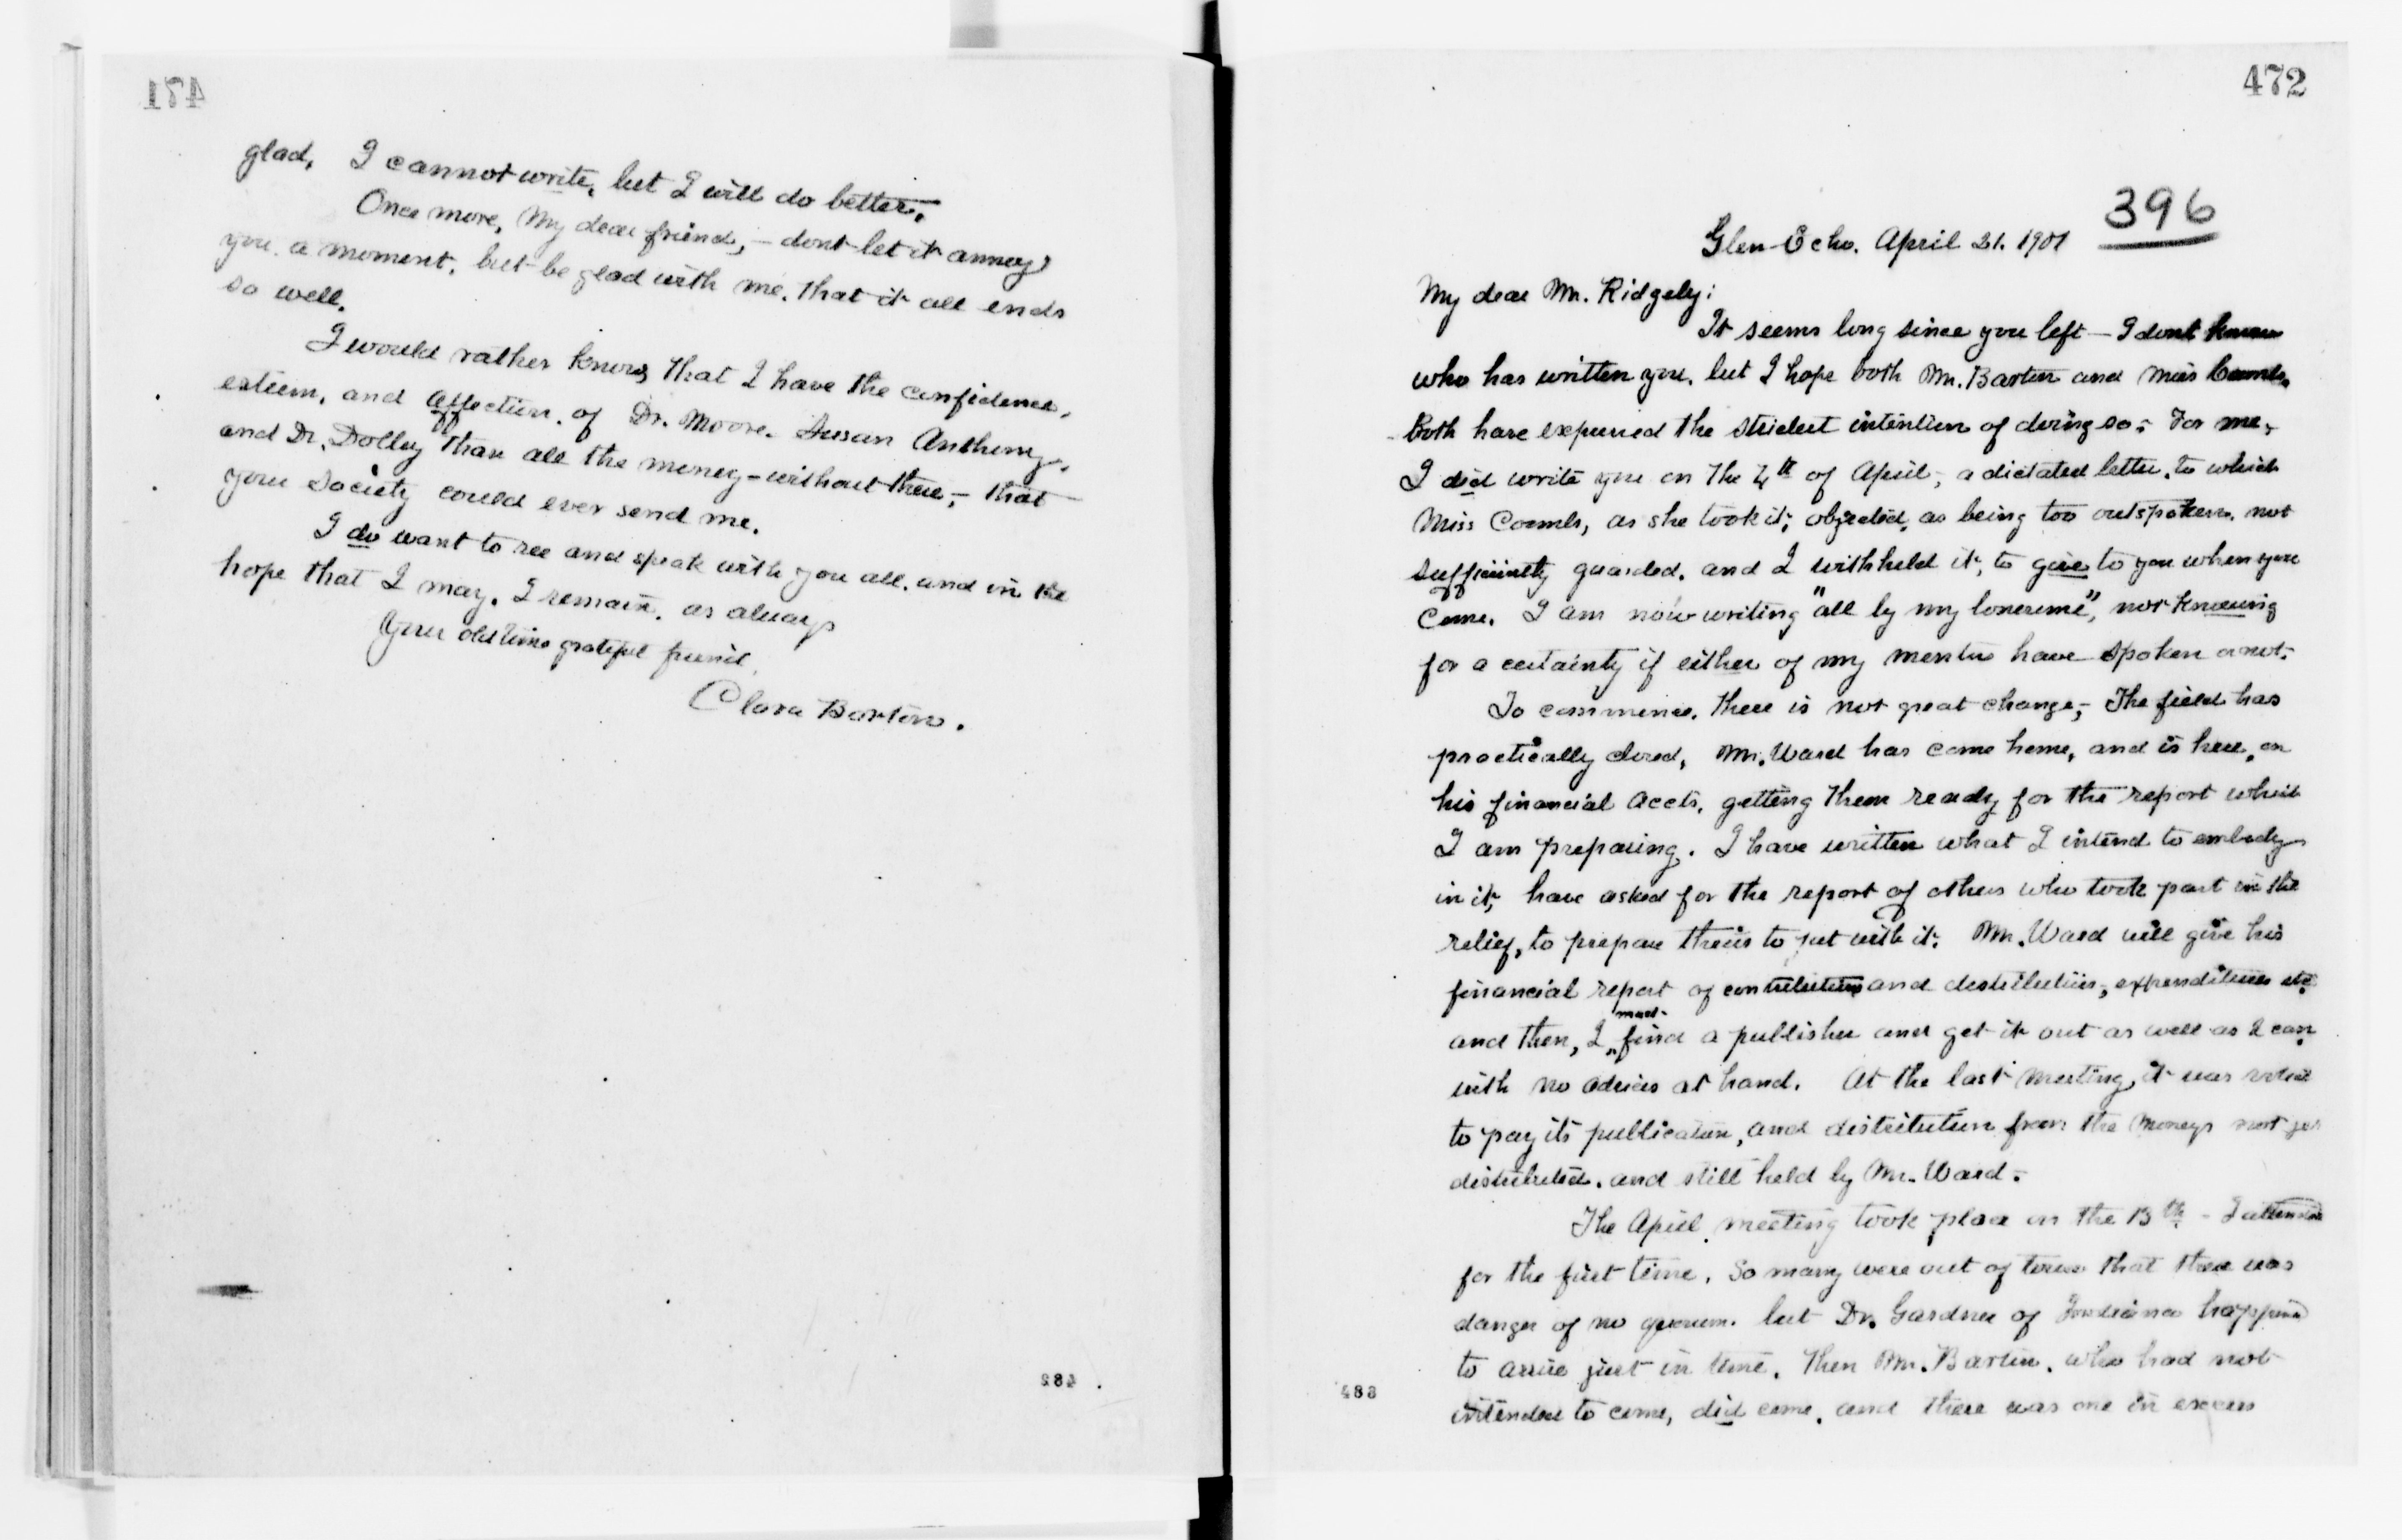 471
glad, I cannot write, but I will do better.
Once more, My dear friend, - dont let it annoy
you a moment, but be glad with me, that it all ends
so well.
I would rather know, that I have the confidence,
esteem, and affection, of Dr. Moore, Susan Anthony,
and Dr. Dolley than all the money - without these, - that
your Society could ever send me.
I do want to see and speak with you all, and in the
hope that I may, I remain, as always
Your old time grateful friend,
Clara Barton.
482
472
396
Glen Echo. April 21. 1901
My dear Mr. Ridgely:
It seems long since you left - I dont know
who has written you, but I hope both Mr. Barton and Miss Coombs.
Both have expressed the strictest intention of doing so; For me,
I did write you on the 4th of April, a dictated letter, to which
Miss Coombs, as she took it, objected, as being too outspoken, not
sufficiently guarded, and I withheld it, to give to you when you
come. I am now writing "all by my lonesome", not knowing
for a certainty if either of my mentors have spoken or not.
To commence, there is not great change, - The field has
practically closed, Mr. Ward has come home, and is here, on
his financial accts, getting them ready for the report which
I am preparing. I have written what I intend to embody
in it, have asked for the report of others who took part in the
relief, to prepare theirs to put with it. Mr. Ward will give his
financial report of contributions and distribution, expenditures etc.
and then, I must find a publisher and get it out as well as I can
with no advices at hand. At the last meeting, it was voted
to pay its publication, and distribution from the moneys not yet
distributed, and still held by Mr. Ward.
The April meeting took place on the 13th - I attended
for the first time. So many were out of town that there was
danger of no quorum. but Dr. Gardner of Indiana happened
to arrive just in time. Then Mr. Barton, who had not
intended to come, did come, and there was one in excess
484